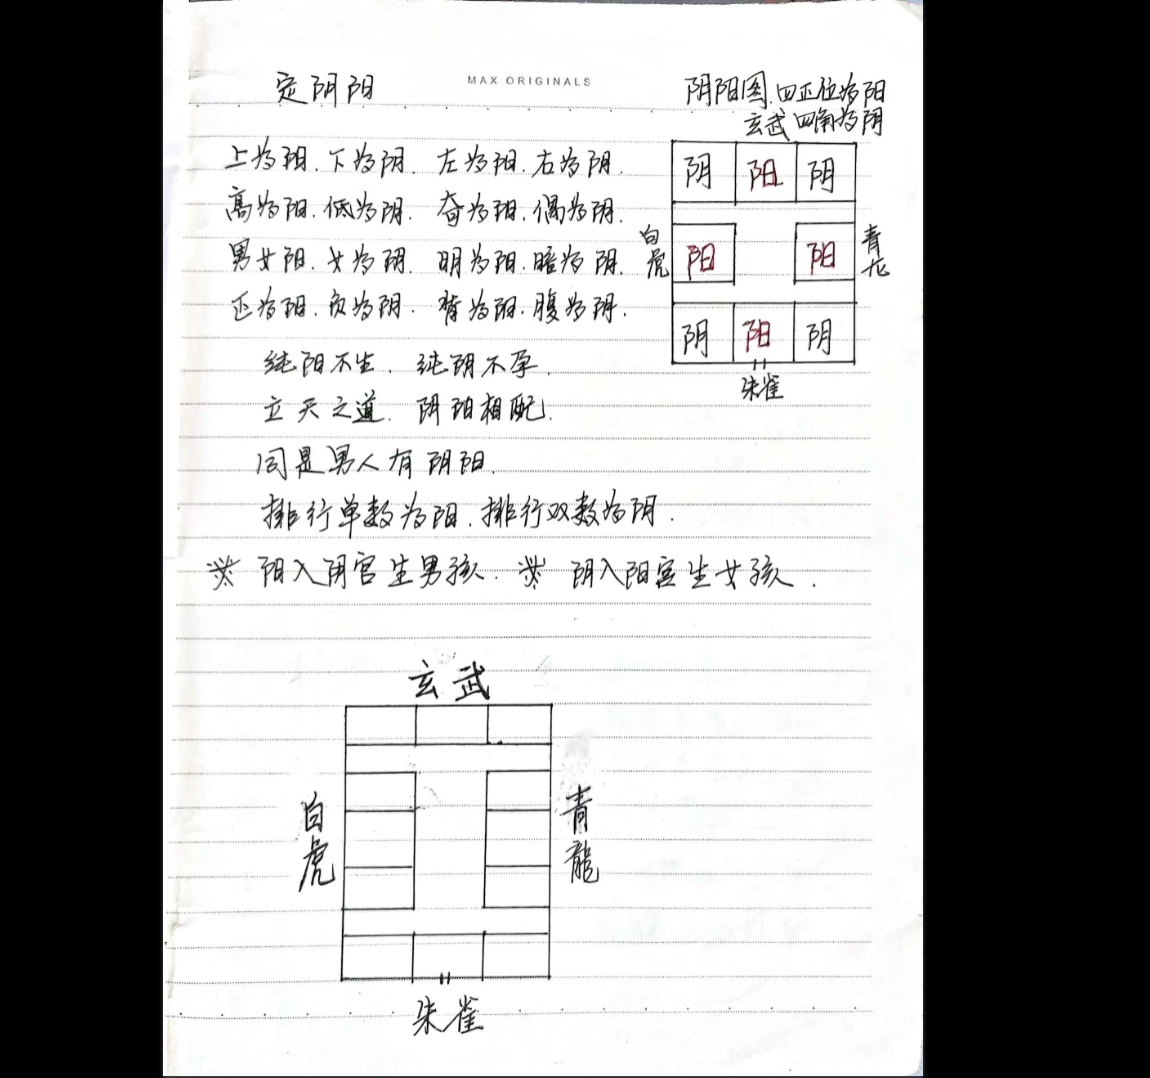 定阴阳
MAX ORIGINALS
阴阳图.四正位为阳
玄武 四角为阴
上为阳.下为阴. 左为阳.右为阴.
高为阳.低为阴. 奇为阳.偶为阴.
男女阳.女为阴. 明为阳.暗为阴.
正为阳.负为阴. 背为阳.腹为阴.
纯阳不生.纯阴不孕.
立天之道.阴阳相配.
同是男人有阴阳.
排行单数为阳.排行双数为阴.
※阳入阴宫生男孩.※阴入阳宫生女孩.
阴 阳 阴
白虎 阳 阳 青龙
阴 阳 阴
朱雀
玄武
白虎
青龍
朱雀